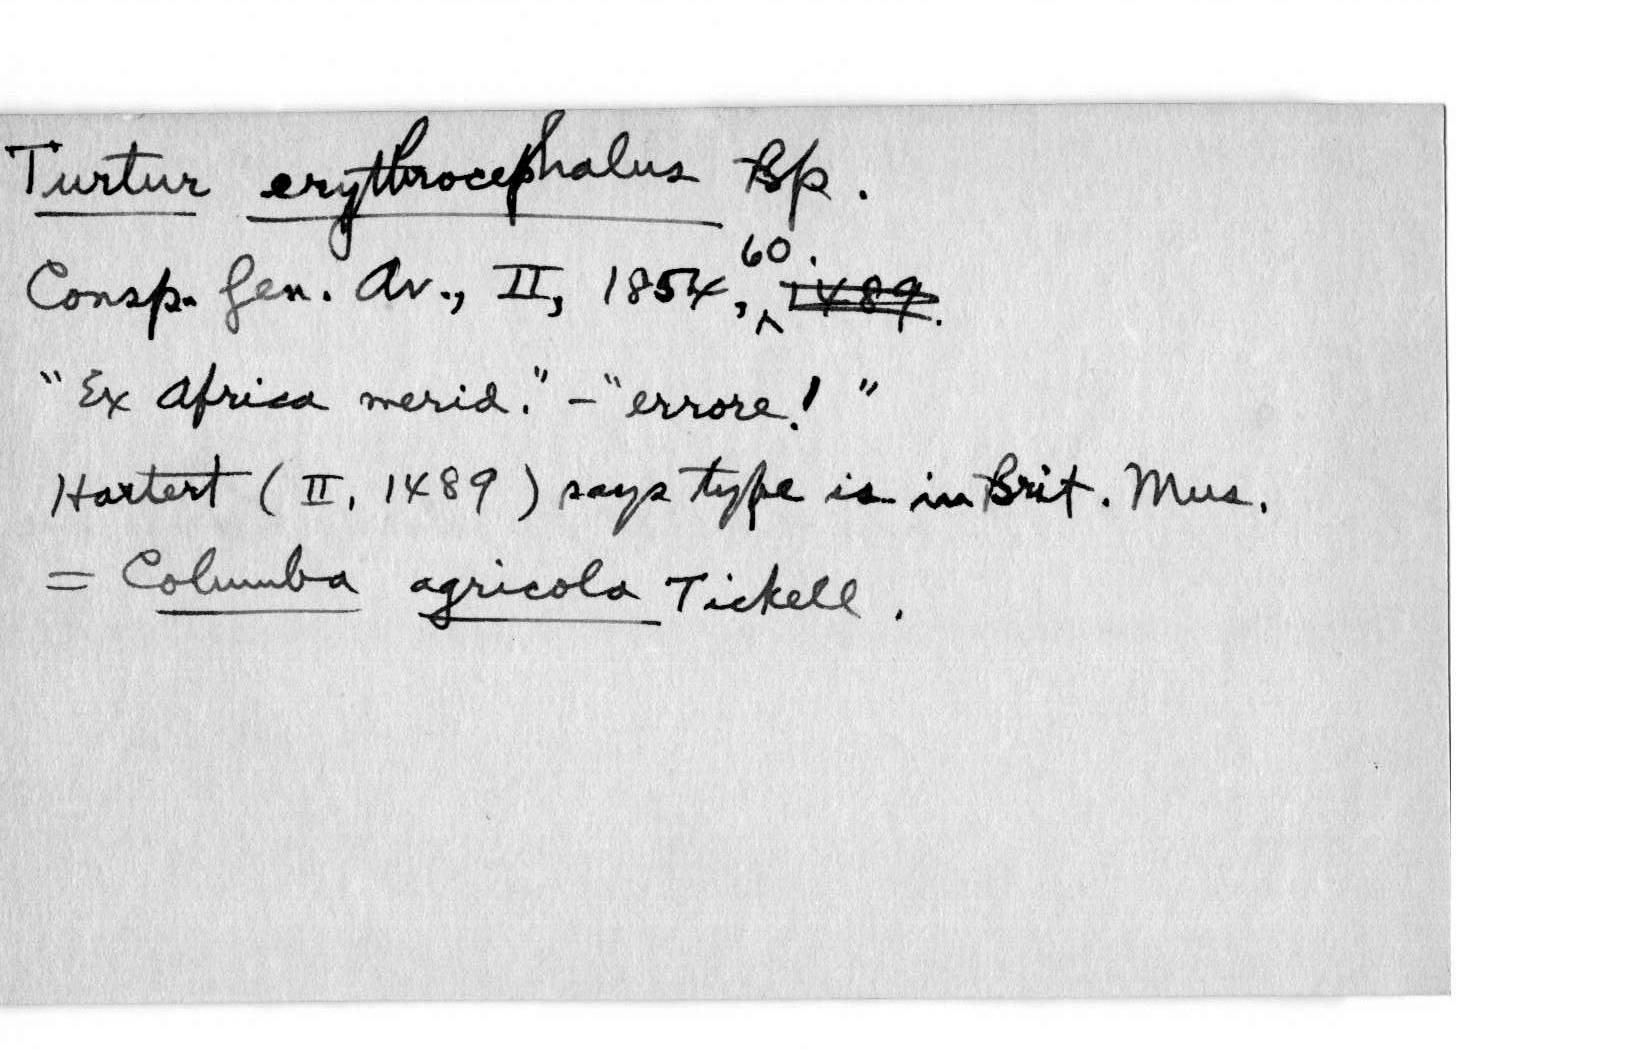 Turtur erythrocephalus Bp.
Consp. Gen. Av., II, 1854, 60. 1489.
"Ex Africa merid." - "errore!"
Hartert (II, 1489) says type is in Brit. Mus.
= Columba agricola Tickell.